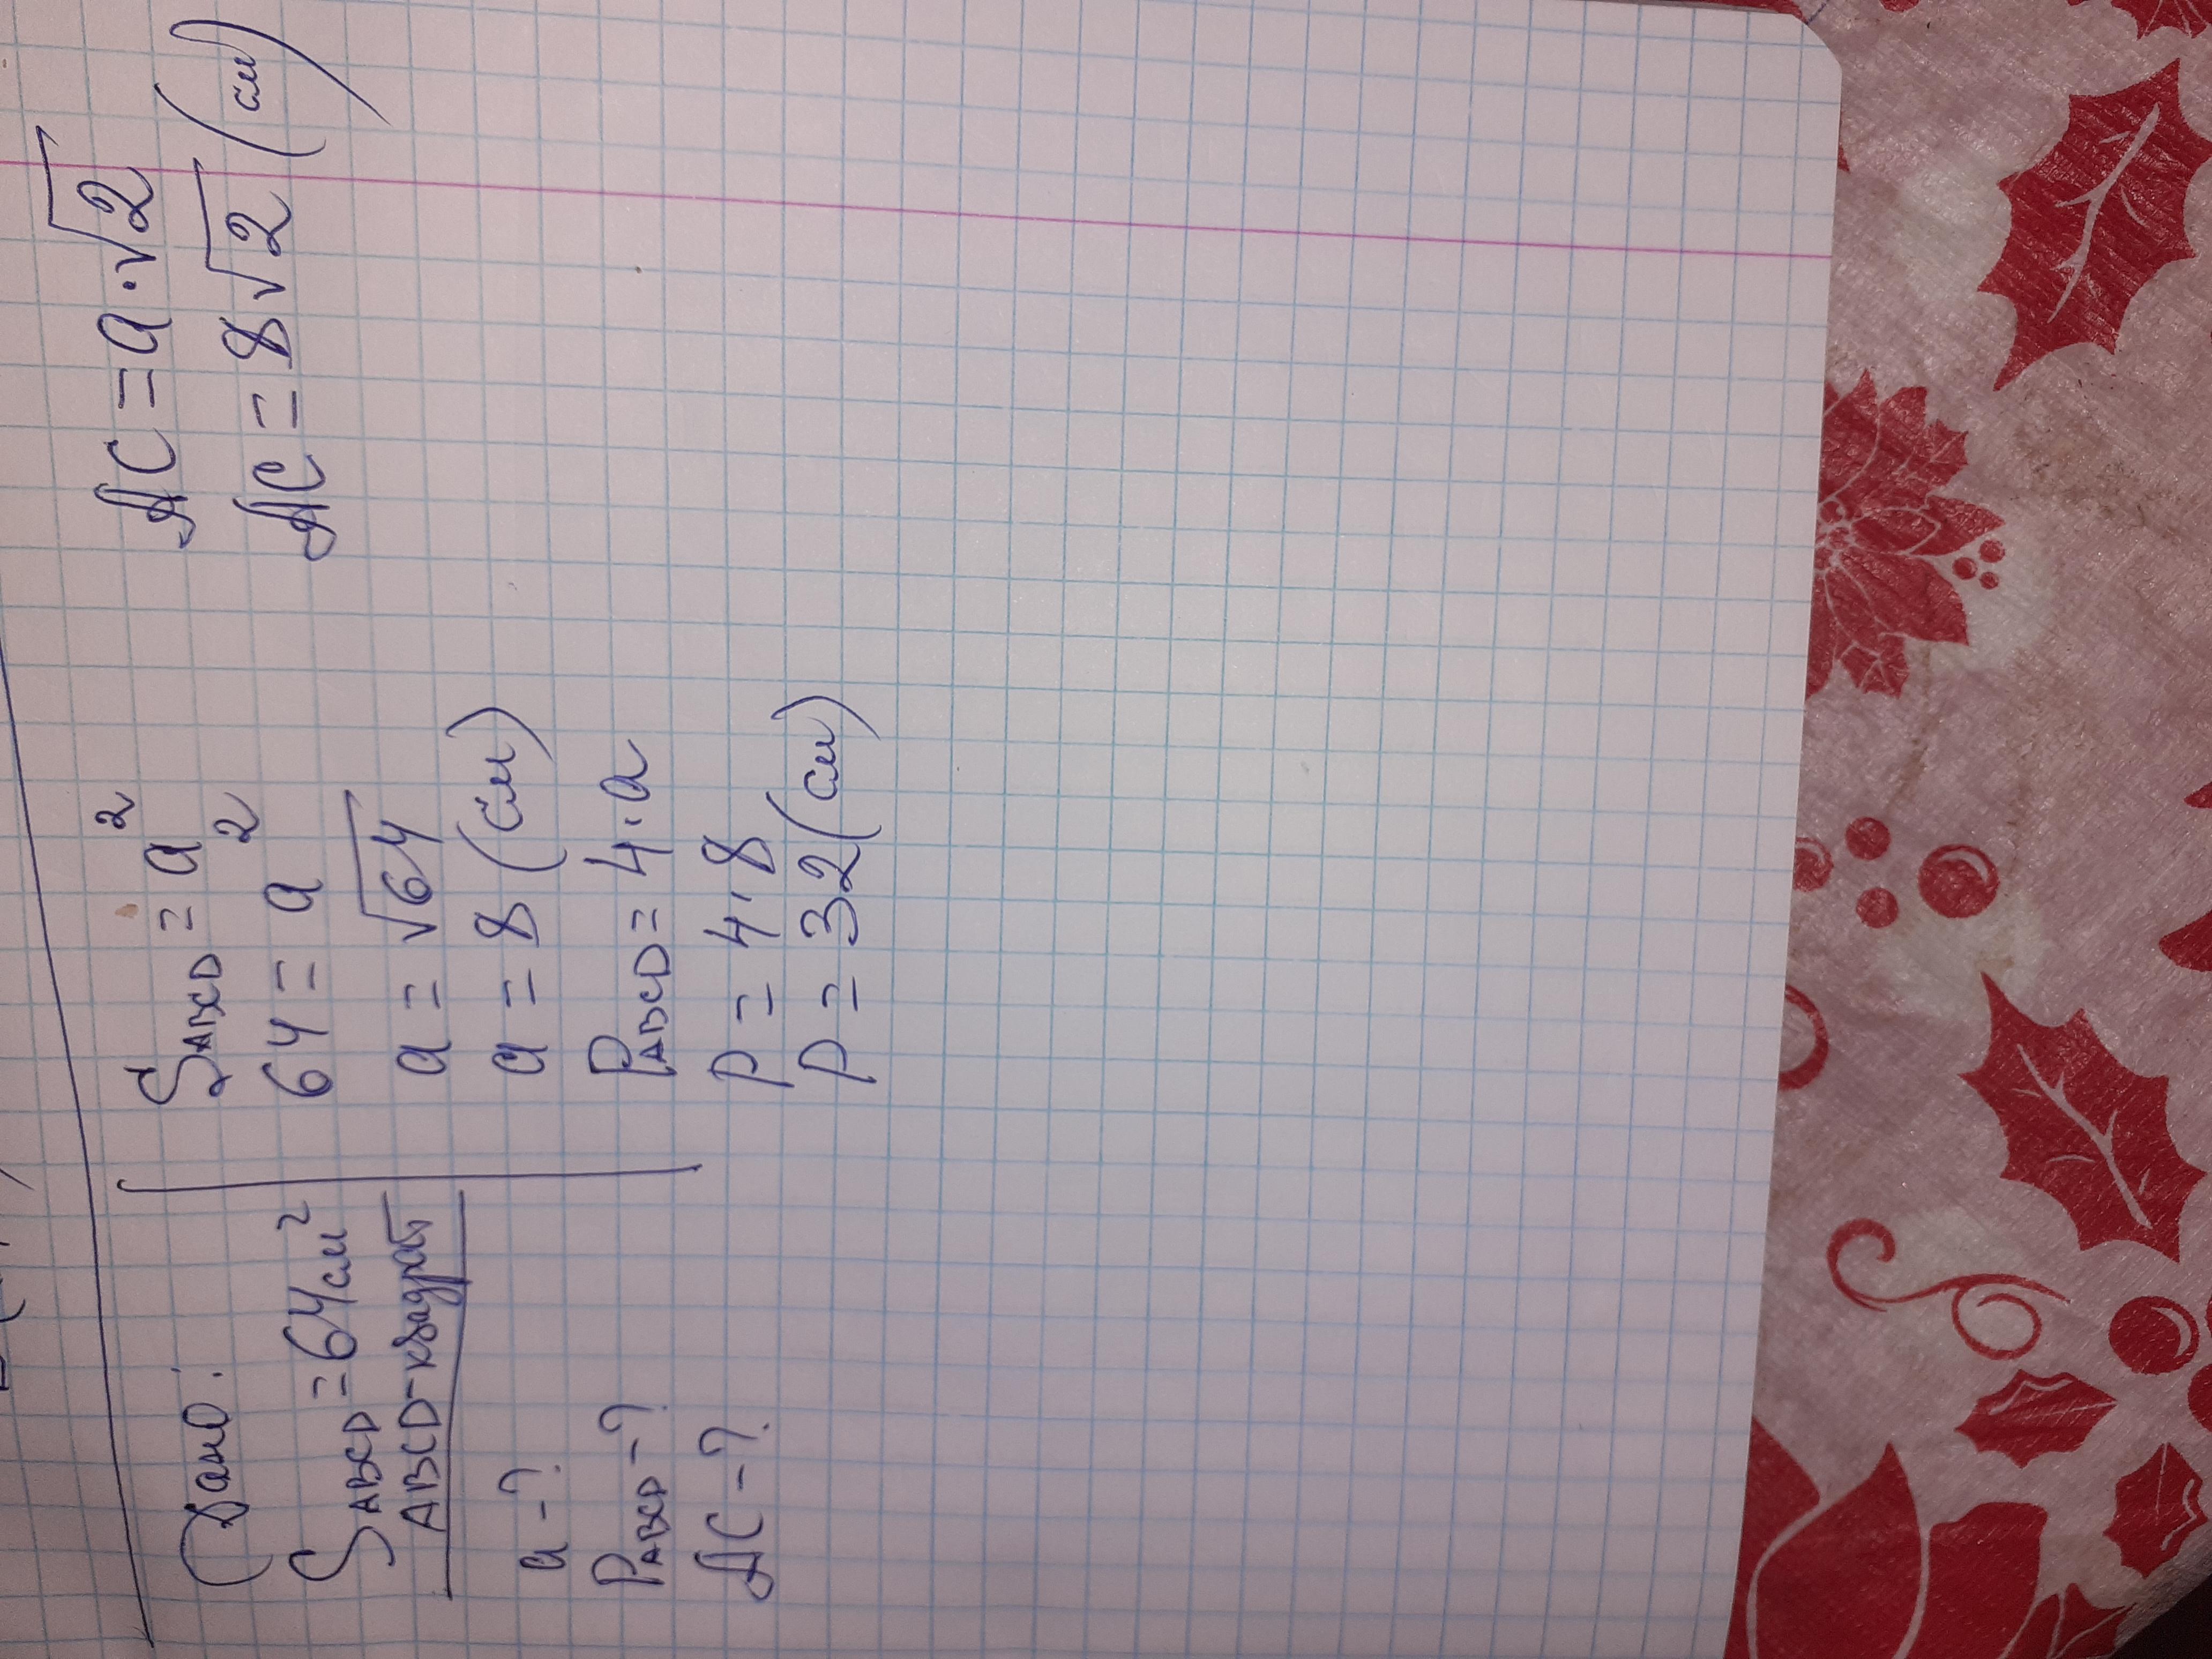 Дано:
S_ABCD = 64 см²
ABCD - квадрат
a - ?
P_ABCD - ?
AC - ?
S_ABCD = a²
64 = a²
a = √64
a = 8 (см)
P_ABCD = 4 · a
P = 4 · 8
P = 32 (см)
AC = a · √2
AC = 8√2 (см)